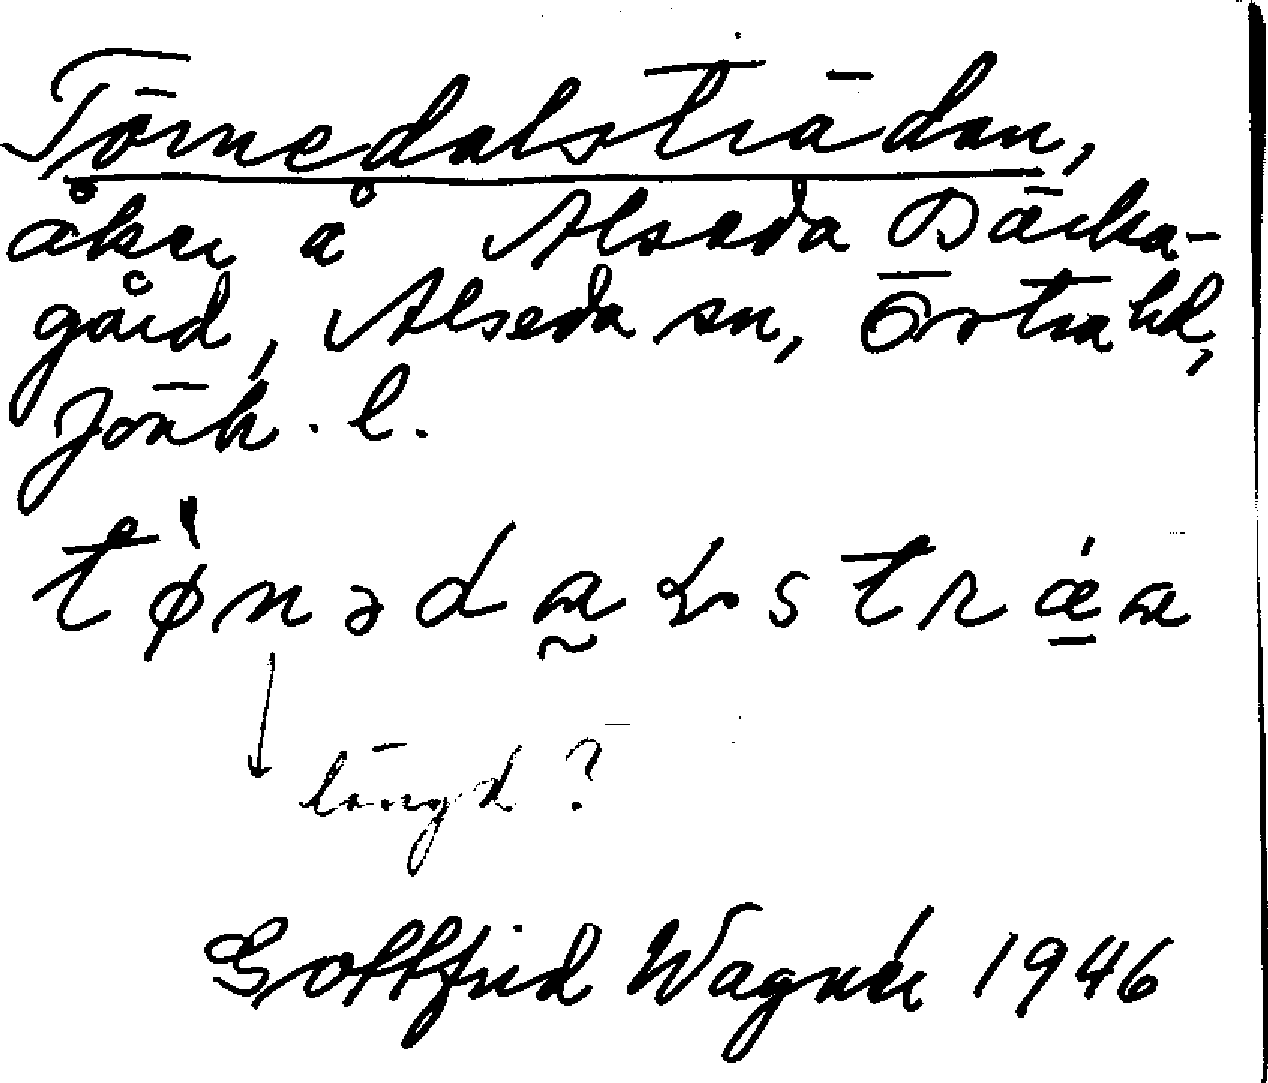 Törnedalsträdan,
åker å Alseda Bäcka-
gård, Alseda sn, Östra hd,
Jönk. l.
tø̀nəda̰ɫstrǽa
längd?
Gottfrid Wagnér 1946